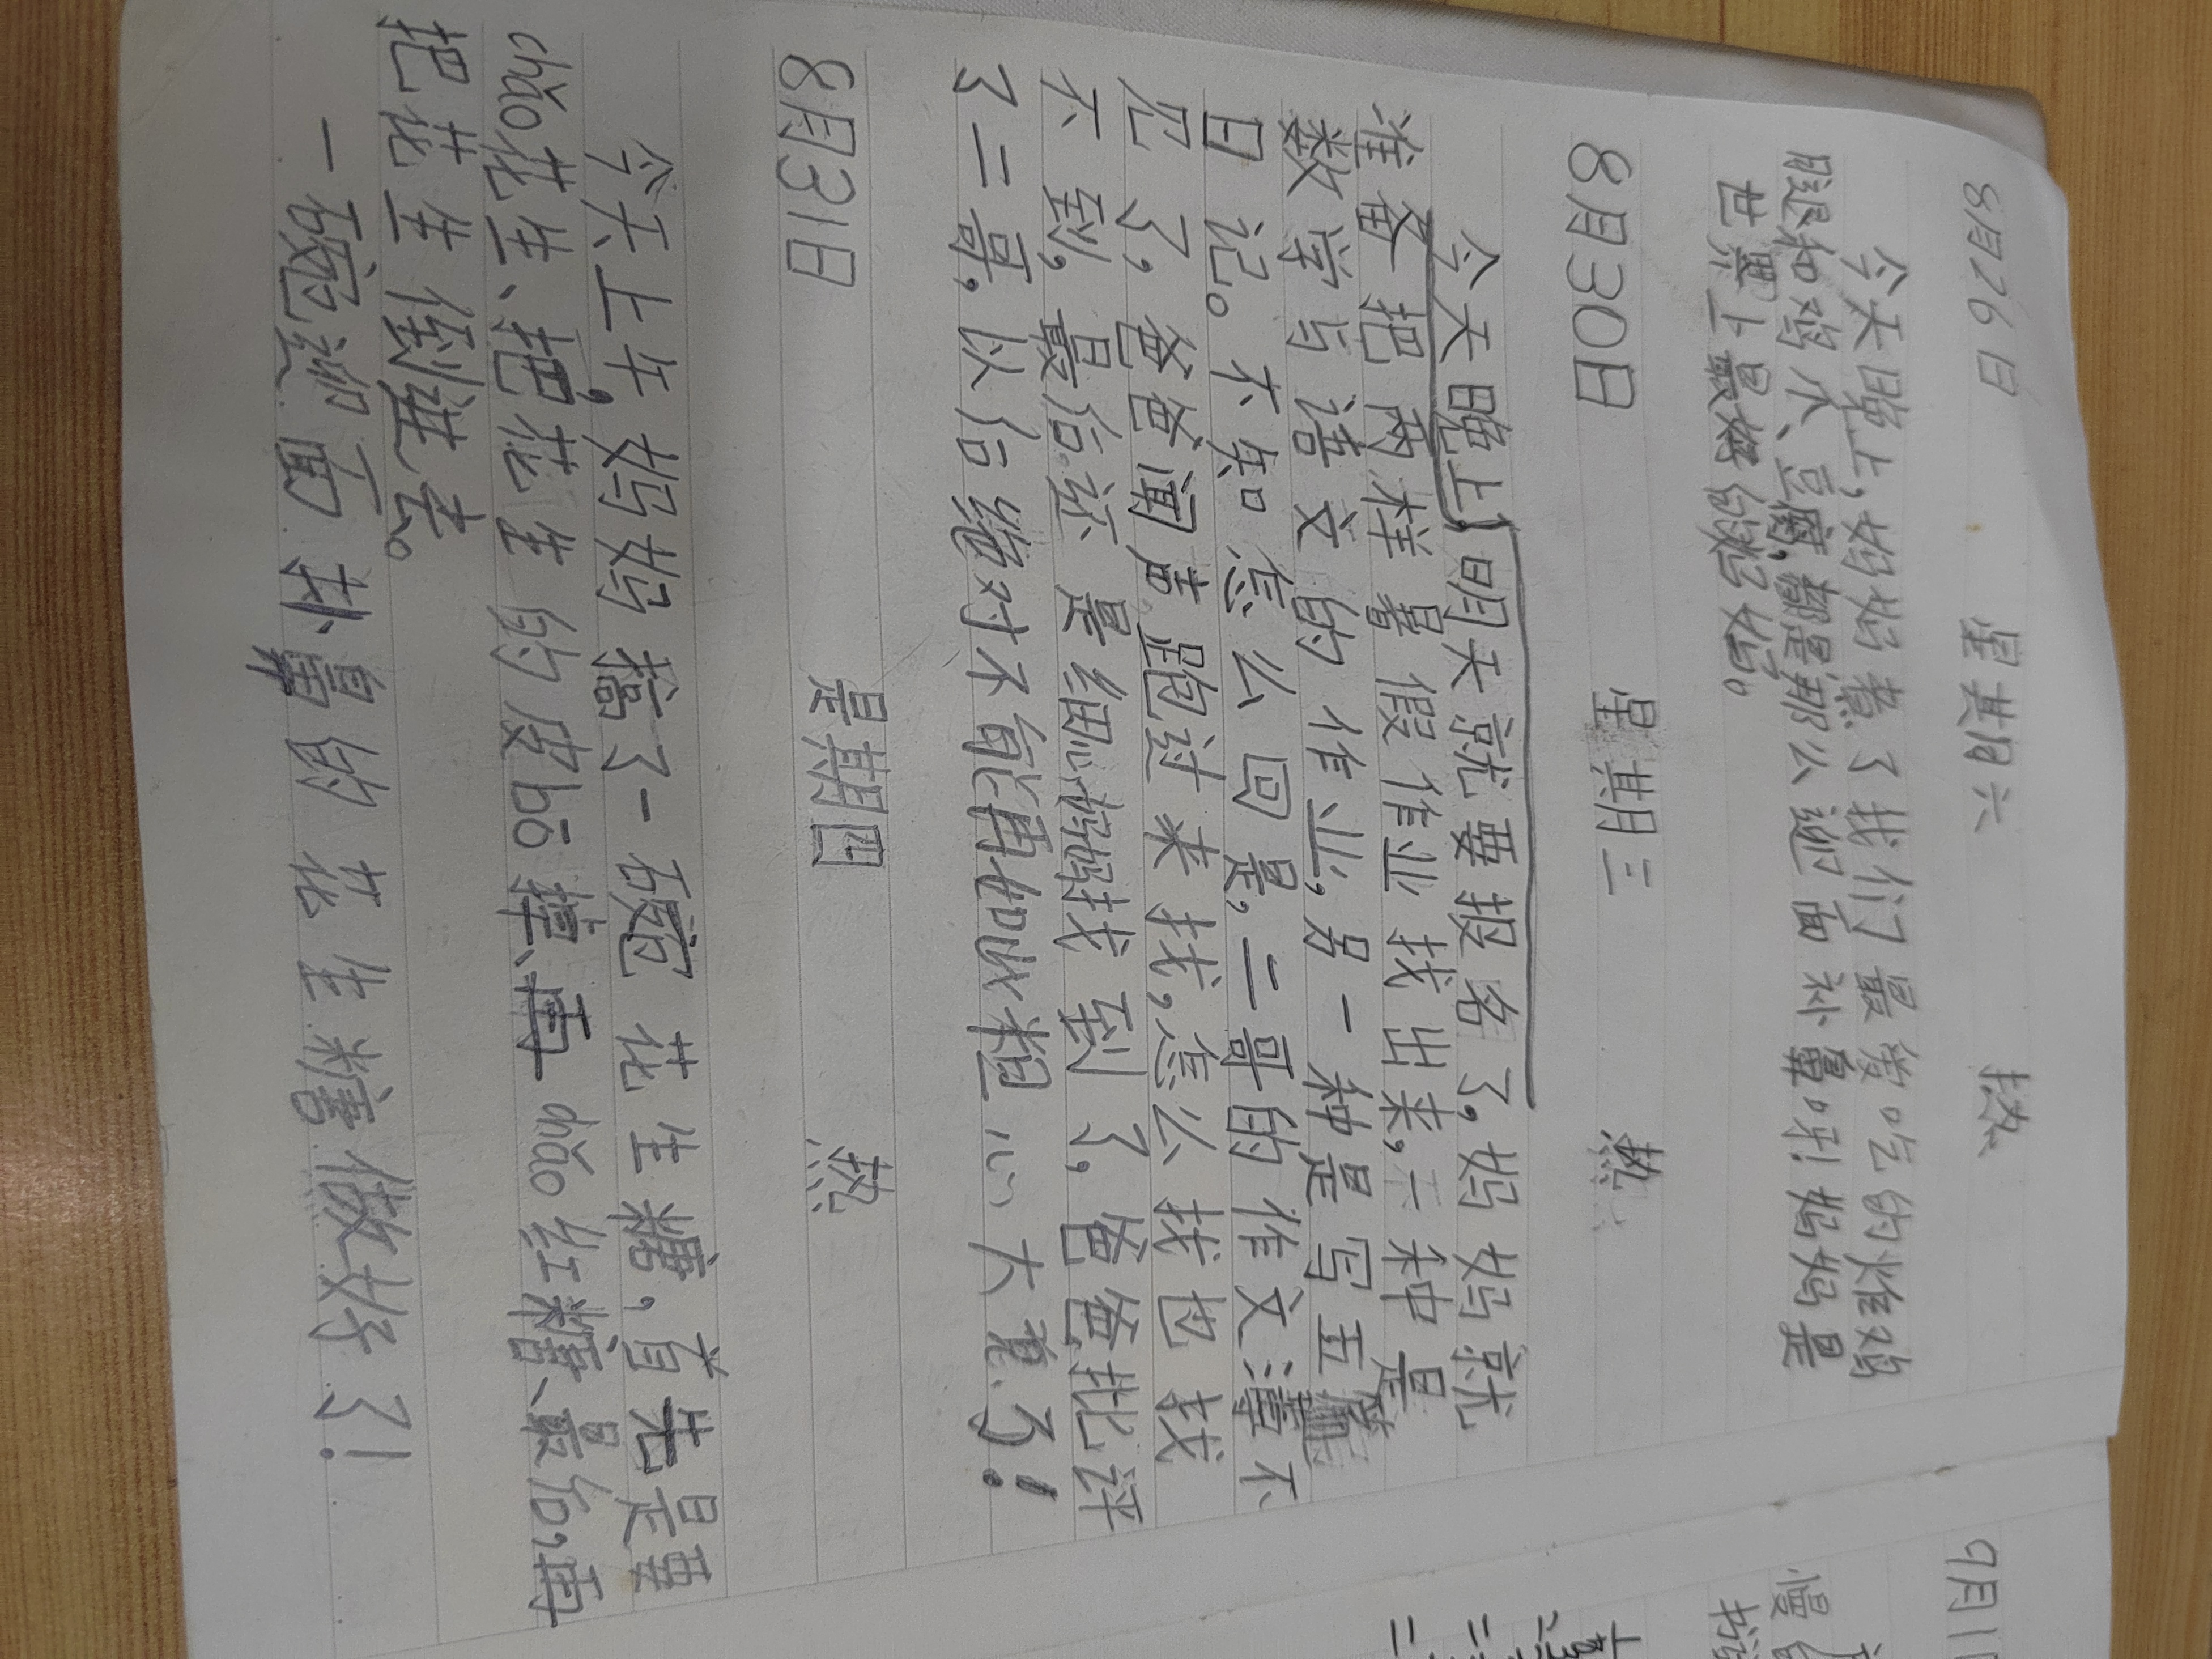 8月26日 星期六 热
今天晚上,妈妈煮了我们最爱吃的炸鸡
腿和鸡爪、豆腐,都是那么迎面扑鼻呀!妈妈是
世界上最好的妈妈。
8月30日 星期三 热
今天晚上,明天就要报名了,妈妈就
准备把两样暑假作业找出来,一种是
数学与语文的作业,另一种是写五篇
日记。不知怎么回是,二哥的作文薄不
见了,爸爸闻声跑过来找,怎么找也找
不到,最后还是细心妈妈找到了,爸爸批评
了二哥,以后绝对不能再如此粗心大意了!
8月31日 星期四 热
今天上午,妈妈搞了一碗花生糖,首先是要
chǎo花生、把花生的皮bō掉、再chǎo红糖、最后,再
把花生倒进去。
一碗迎面扑鼻的花生糖做好了!
9月1日
慢